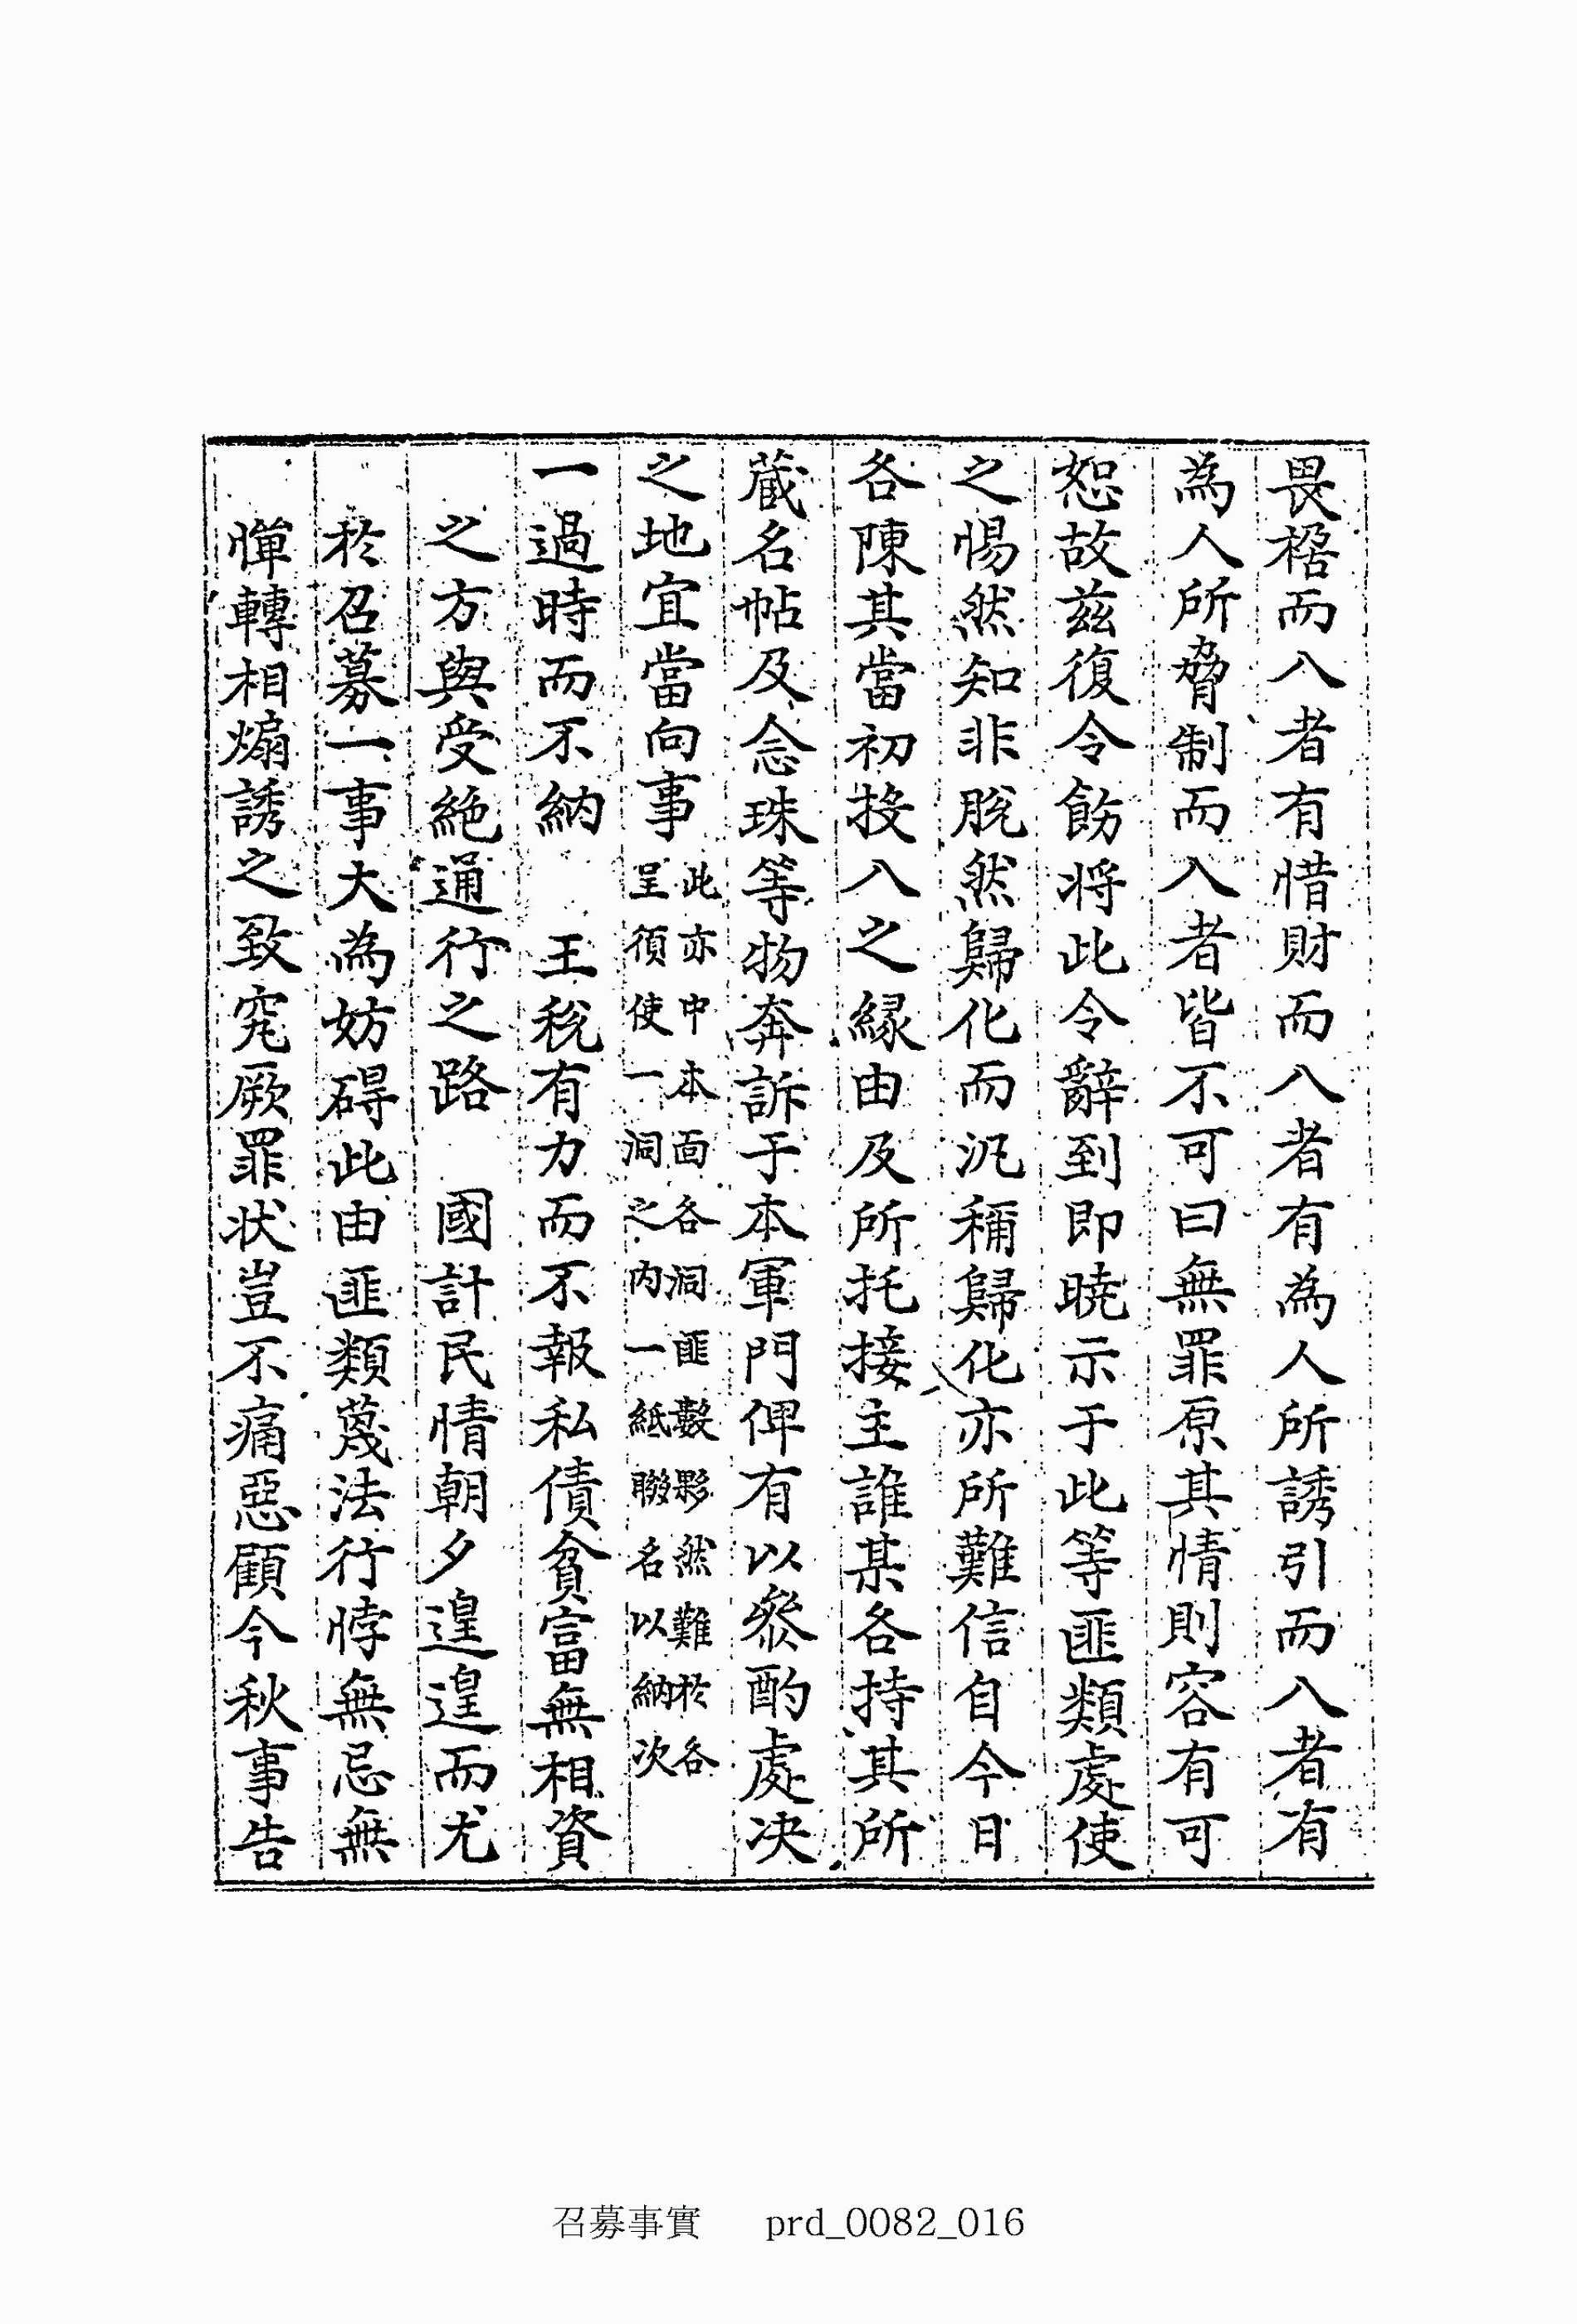 畏禍而入者有惜財而入者有為人所誘引而入者有
為人所脅制而入者皆不可曰無罪原其情則容有可
恕故茲復令飭将此令辭到即曉示于此等匪類處使
之惕然知非脫然歸化而汎稱歸化亦所難信自今日
各陳其當初投入之緣由及所托接主誰某各持其所
蔵名帖及念珠等物奔訴于本軍門俾有以叅酌處决
之地宜當向事
此亦中本面各洞匪數夥然難於各
呈須使一洞之内一紙聯名以納次
一過時而不納 王稅有力而不報私債貧富無相資
之方與受絶通行之路 國計民情朝夕遑遑而尤
於召募一事大為妨碍此由匪類蔑法行悖無忌無
憚轉相煽誘之致究厥罪状豈不痛惡顧今秋事告
召募事實 prd_0082_016